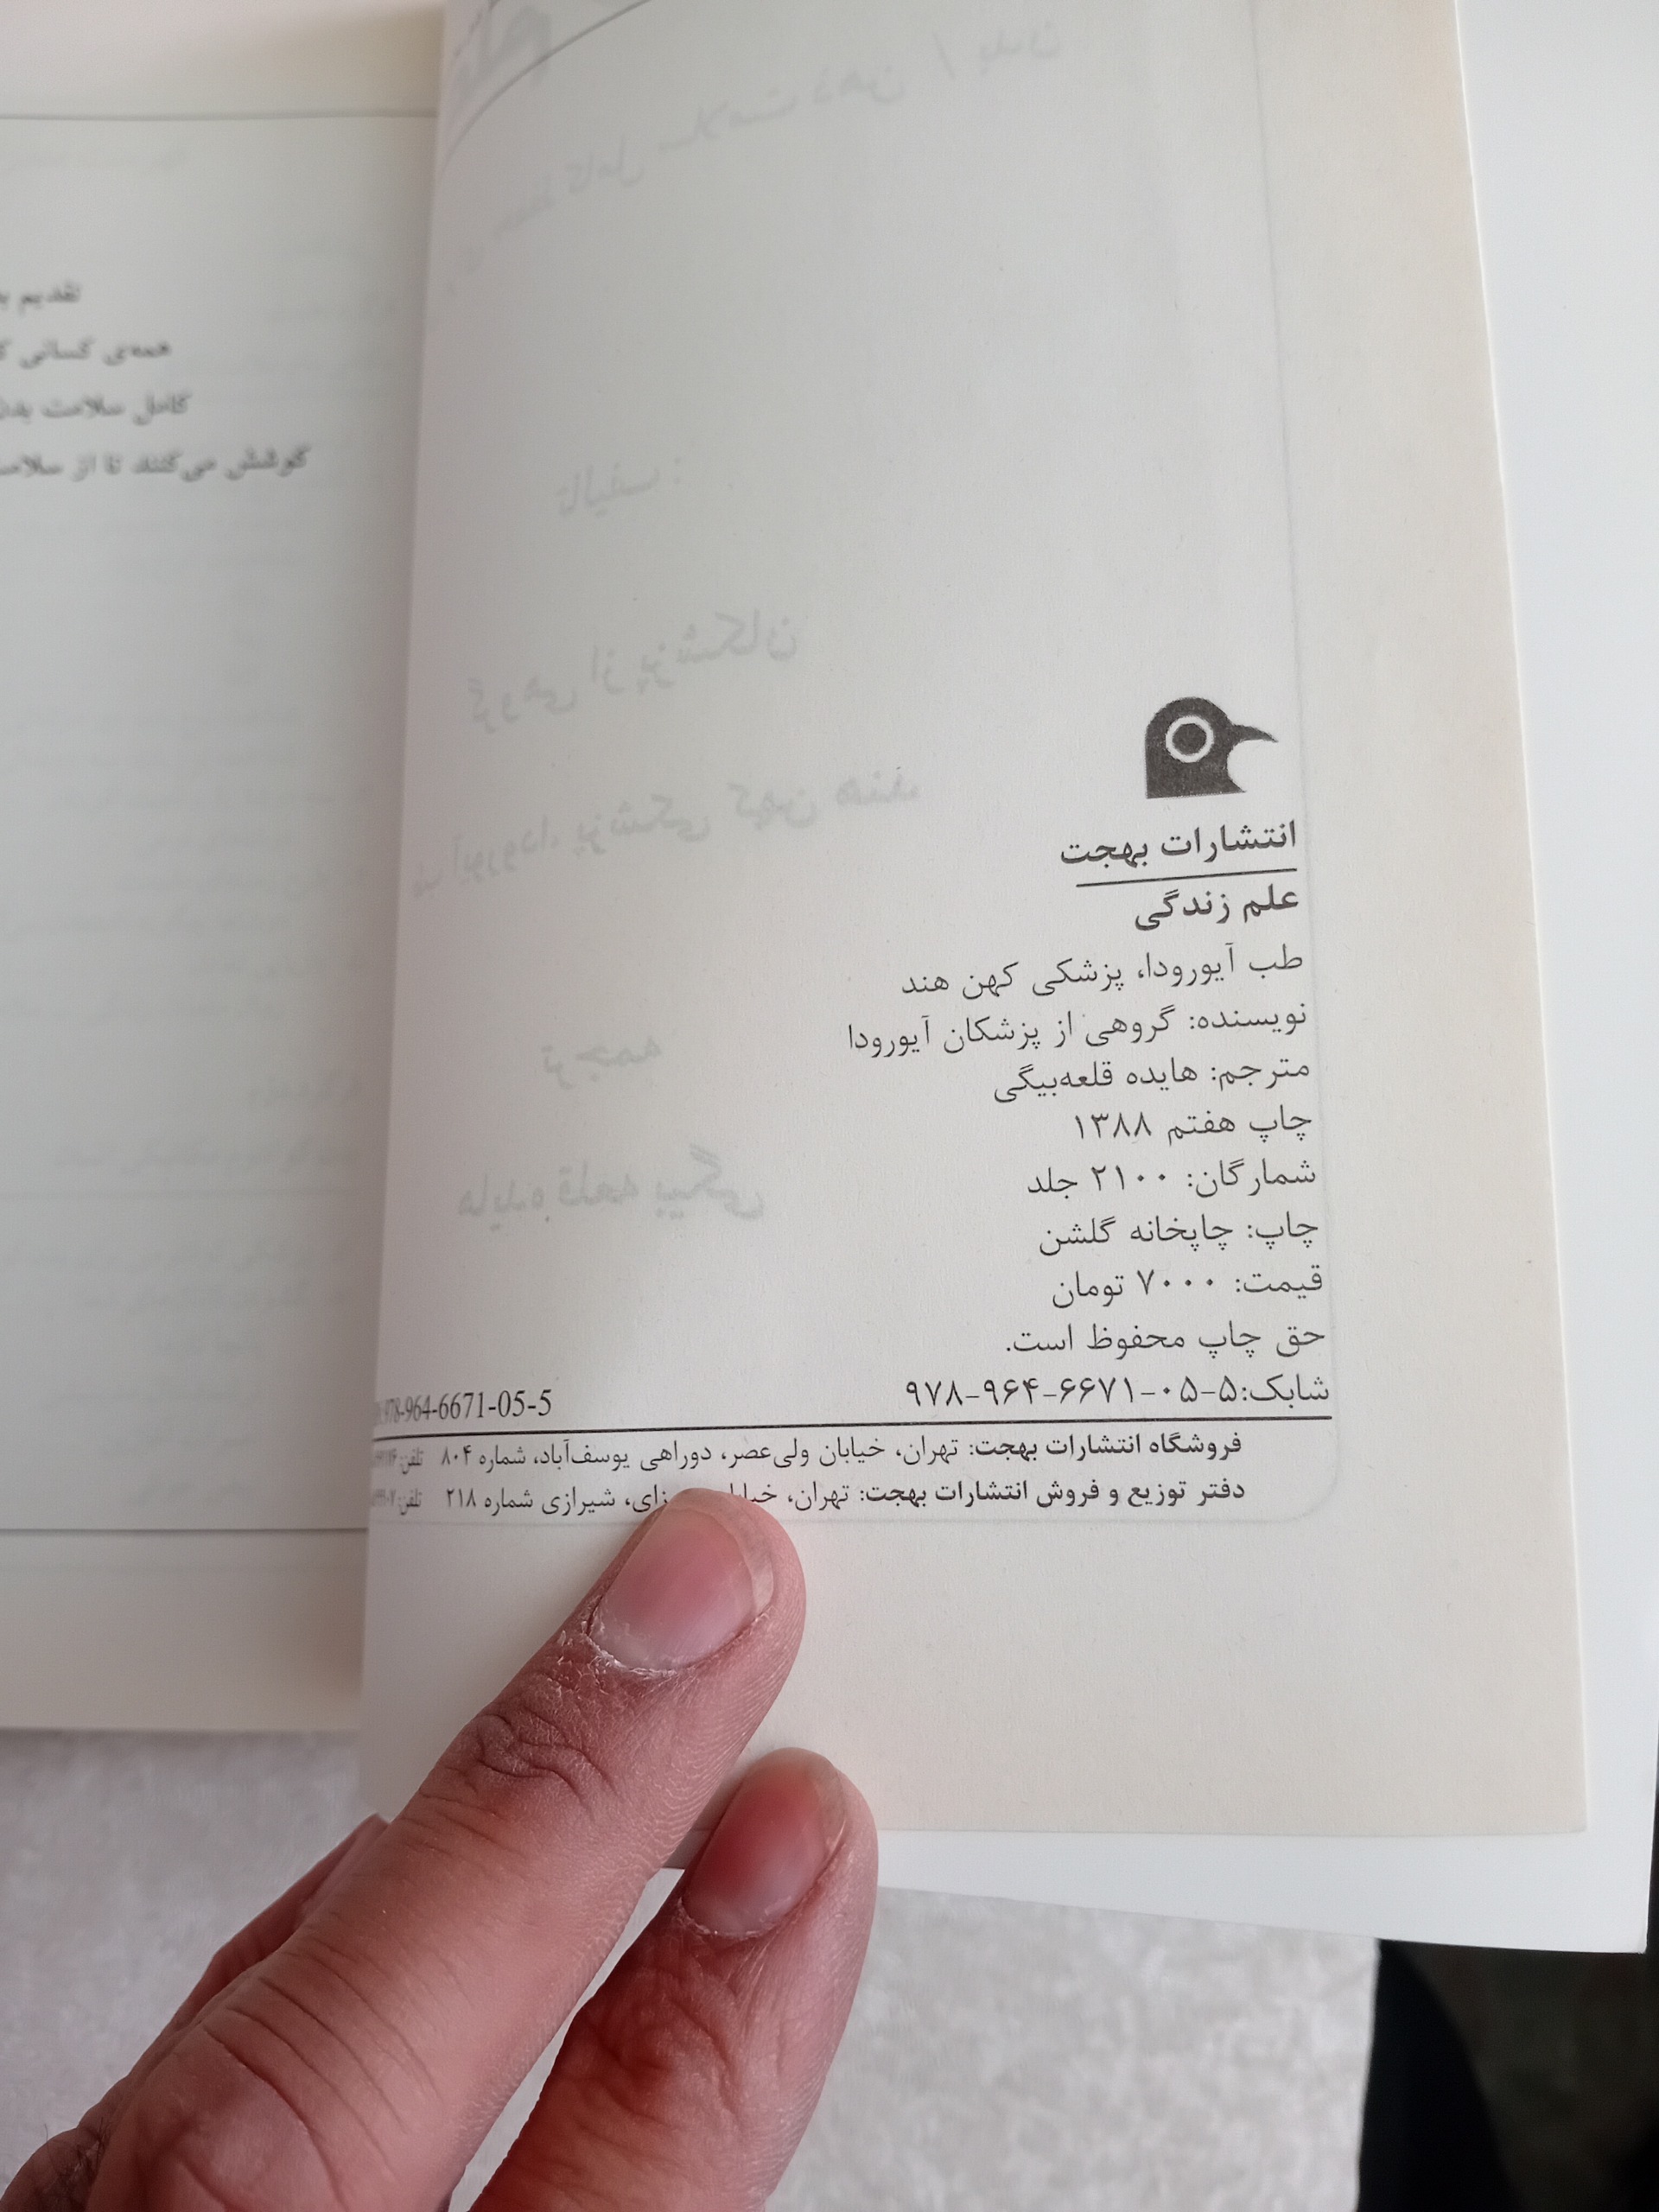 انتشارات بهجت
علم زندگی
طب آیورودا، پزشکی کهن هند
نویسنده: گروهی از پزشکان آیورودا
مترجم: هایده قلعه‌بیگی
چاپ هفتم ۱۳۸۸
شمارگان: ۲۱۰۰ جلد
چاپ: چاپخانه گلشن
قیمت: ۷۰۰۰ تومان
حق چاپ محفوظ است.
شابک:۵-۰۵-۶۶۷۱-۹۶۴-۹۷۸ 978-964-6671-05-5
فروشگاه انتشارات بهجت: تهران، خیابان ولی‌عصر، دوراهی یوسف‌آباد، شماره ۸۰۴ تلفن:
دفتر توزیع و فروش انتشارات بهجت: تهران، شیرازی شماره ۲۱۸ تلفن:
تقدیم
همه‌ی کسانی
کامل سلامت
کوشش می‌کنند تا از